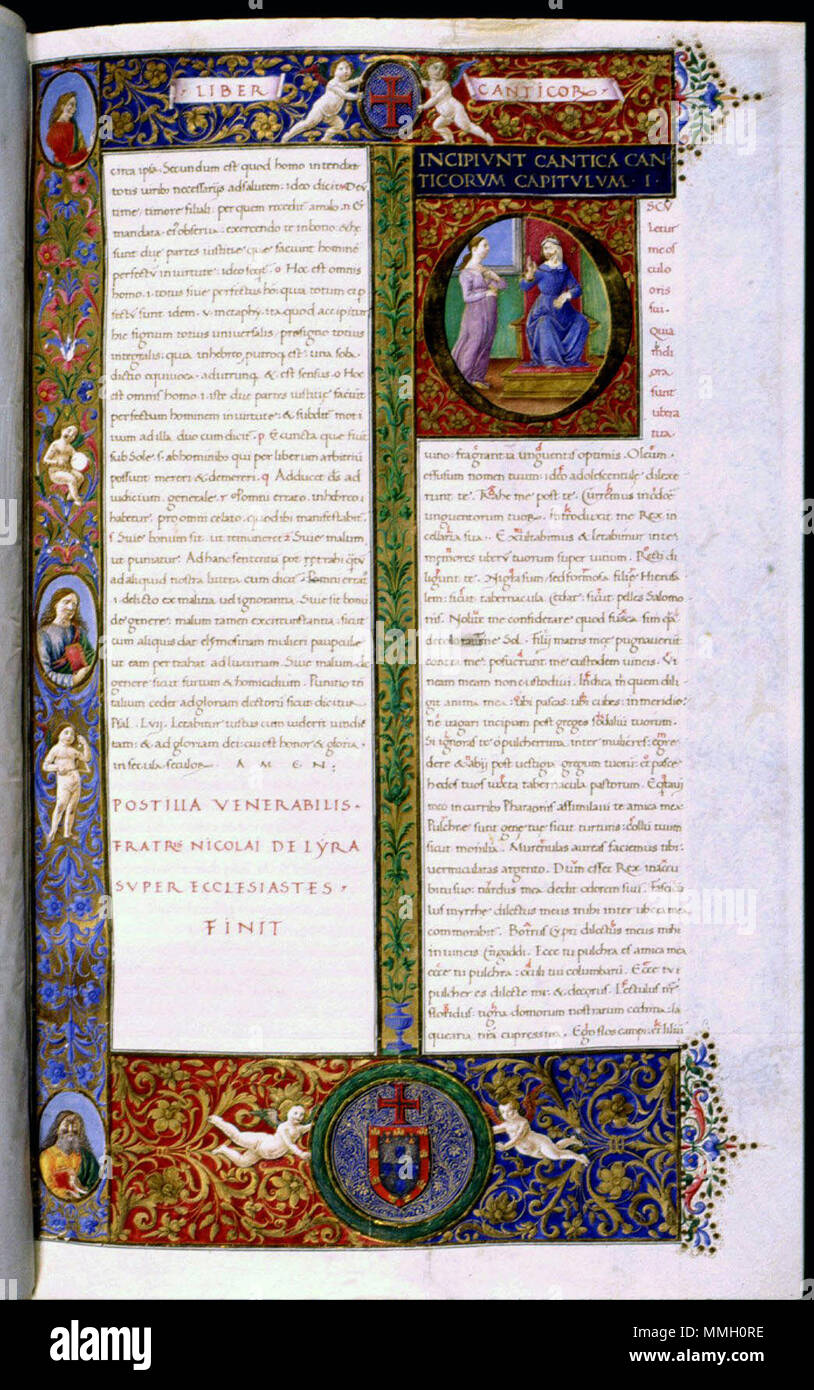 LIBER
CANTICOR
circa ipsa. Secundum est quod homo intendat
totis uiribus necessarijs ad salutem: ideo dicitur Deū
time, timore filiali: per quem recedit a malo. n Et
mandata eius obserua: exercendo te in bono: & he
sunt due partes iustitie que faciunt hominē
perfectū in uirtute: ideo seqt̄. o Hoc est omnis
homo. i. totus siue perfectus hō: quia totum et p
fectū sunt idem. v. metaphy. ita quod accipitur
hic signum totius uniuersalis, pro signo totius
integralis: quia in hebreo
dictio equiuoca ad utrunq & est sensus. o Hoc
est omnis homo. i. iste due partes iustitie faciunt
perfectum hominem in uirtute: & subdit mot i
uum ad illa duo cum dicit. p Et cuncta que fiūt
sub Sole. s. ab hominibus qui per liberum arbitriū
possunt mereri & demereri. q Adducet ds ad
iudicium generale. r Pomni errato. In hebreo i
habetur. pro omni celato, quod ibi manifestabit̄.
s Siue bonum sit. ut remuneret 2 Siue malum
ut puniatur. Ad hanc sententiā pōt
ad aliquid nostra littera cum dicit. Pomni errat
.i. delicto ex malitia uel ignorantia. Siue sit bonū
de genere: malum tamen ex circunstantia: sicut
cum aliquis dat elymosinam mulieri paupcule
ut eam pertrahat ad luxuriam. Siue malum de
genere sicut furtum & homicidium. Punitio
talium cedet ad gloriam electorū sicut dicitur
Psal. Lvij. Letabitur iustus cum uiderit uindic
tam: & ad gloriam dei: cui est honor & gloria.
in secula seculor. AMEN:
POSTILLA VENERABILIS.
FRATRIS NICOLAI DE LYRA
SVPER ECCLESIASTES.
FINIT
INCIPIVNT CANTICA CAN
TICORVM CAPITVLVM . I .
O
SCV
letur
me os
culo
oris
sui.
Quia
ora
sunt
ubera
tua.
uino. fragrantia unguentis optimis. Oleum.
effusum nomen tuum: ideo adolescentule dilexe
runt te. Trahe me post te. Curremus in odore
unguentorum tuor. introduxit me Rex in
cellaria sua. Exultabimus & letabimur in te:
memores uberū tuorum super uinum. Recti di
ligunt te. Nigra sum sed formosa. filie Hierusa
lem: sicut tabernacula Cedar: sicut pelles Salomo
nis. Nolite me considerare quod fusca sim quia
decolorauit me Sol. Filij matris mee pugnauerūt
contra me: posuerunt me custodem in uineis. Vi
neam meam non custodiui. Indica m quem dili
git anima mea. Ubi pascas: ubi cubes: in meridie:
ne uagari incipiam post greges sodaliū tuorum.
Si ignoras te o pulcherrima inter mulieres: egre
dere & abij post uestigia gregum tuorū: et pasce
hedos tuos iuxta tabernacula pastorum. Equitatui
meo in curribus Pharaonis assimilaui te amica mea.
Pulchre sunt gene tue sicut turturis: collū tuum
sicut monilia. Murenulas aureas faciemus tibi:
vermiculatas argento. Dum esset Rex in accu
bitu suo: nardus mea dedit odorem suū. Fascicu
lus myrrhe dilectus meus mihi inter ubera mea
commorabit. Botrus Cypri dilectus meus mihi
in uineis Engaddi. Ecce tu pulchra es amica mea
ecce tu pulchra: oculi tui columbarū. Ecce tu
pulcher es dilecte mi: & decorus. Lectulus nr
floridus: tigna domorum nostrarum cedrina: la
quearia nra cupressina. Ego flos campi: et liliū
alamy
Image ID: MMH0RE
www.alamy.com